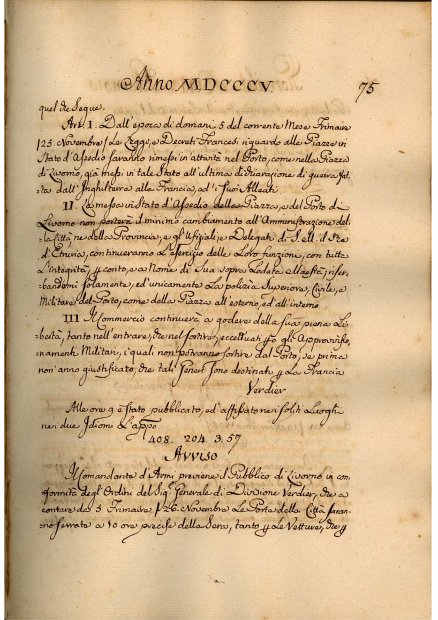 Anno MDCCCV
75
quel che Segue.
Art. I. Dall'epoca di domani 5 del corrente Mese Frimaire
125. Novembre/ Le Leggi, e Decreti Francesi riguardo alle Piazze in
Stato d'Assedio saranno rimessi in attività nel Porto, come nella Piazza
di Livorno, già messi in tale Stato all'ultima dichiarazione di guerra fat-
ta dall'Inghilterra alla Francia, ed i Suoi Alleati.
II. La messa in Stato d'Assedio della Piazza, e del Porto di
Livorno non porterà il minimo cambiamento all'Amministrazione del-
-la Città ne della Provincia, e gli Ufiziali, e Delegati di S. M. il Re
d'Etruria, continueranno L'esercizio delle Loro funzioni, con tutta
L'integrità, e conto, e a Nome di Sua sopra Lodata Maestà, riser-
bandomi solamente, ed unicamente La polizia Superiore, Civile, e
Militare del Porto, come della Piazza all'esterno, ed all'interno.
III. Il Commercio continuerà a godere della sua piena Li-
bertà, tanto nell'entrare, che nel sortire, eccettuati gli Approvisio-
namenti Militari, i quali non potranno sortire dal Porto, se prima
non è anno giustificato, che tali Generi sono destinati La Francia
Verdier
Alle ore 9 è Stato pubblicato, ed affissato nei soliti Luoghi
nei due Idiomi L'app.o
408. 204. 3. 57
Avviso
Il Comandante d'Armi previene il Pubblico di Livorno in con-
formità degl'Ordini del Sig. Generale di Divisione Verdier, che a
contare da 5 Frimaire /26. Novembre Le Porte della Città saran-
no serrate a 10 ore precise della Sera, tanto Le Vetture, che